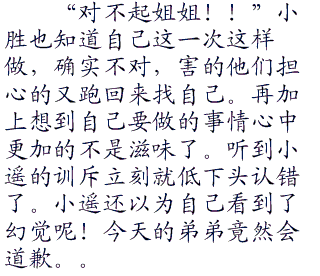 “对不起姐姐！！”小
胜也知道自己这一次这样
做，确实不对，害的他们担
心的又跑回来找自己。再加
上想到自己要做的事情心中
更加的不是滋味了。听到小
遥的训斥立刻就低下头认错
了。小遥还以为自己看到了
幻觉呢！今天的弟弟竟然会
道歉。。